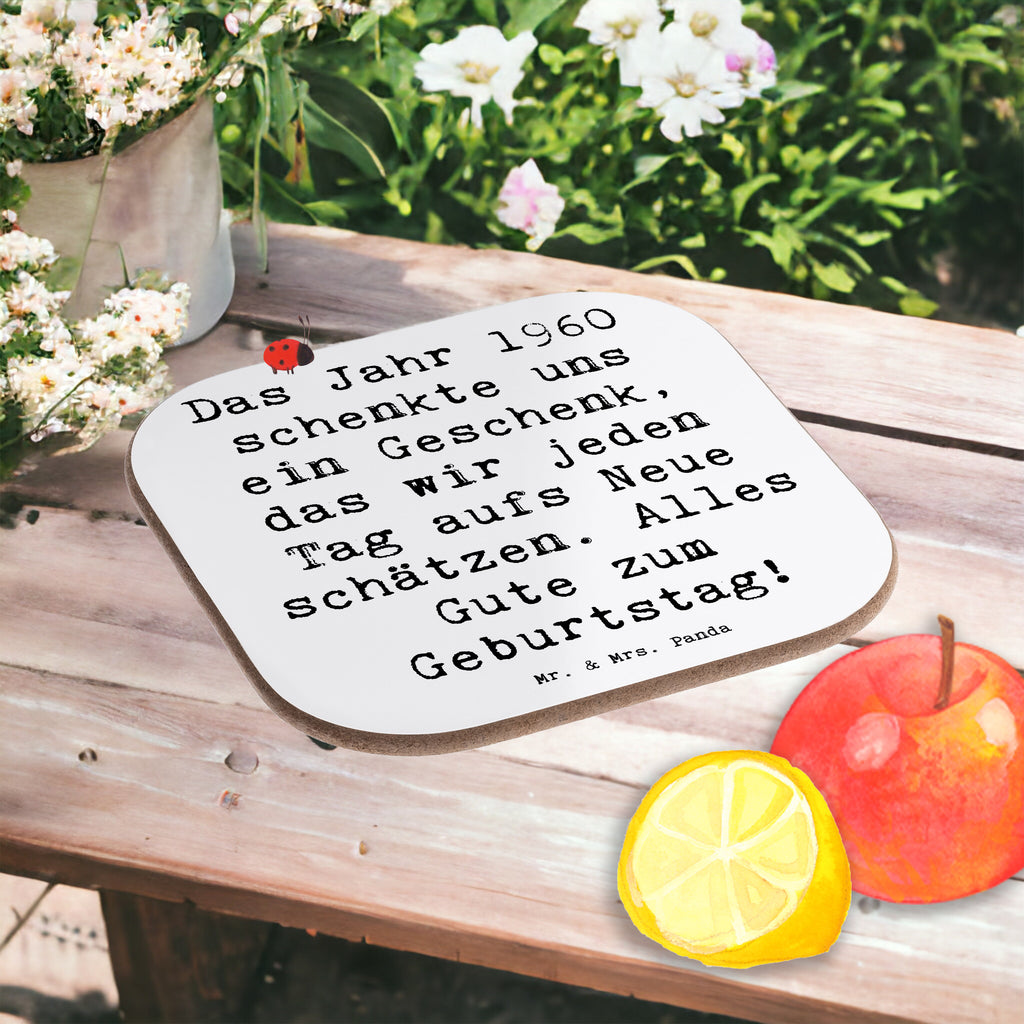 Das Jahr 1960
schenkte uns
ein Geschenk,
das wir jeden
Tag aufs Neue
schätzen. Alles
Gute zum
Geburtstag!
Mr. & Mrs. Panda